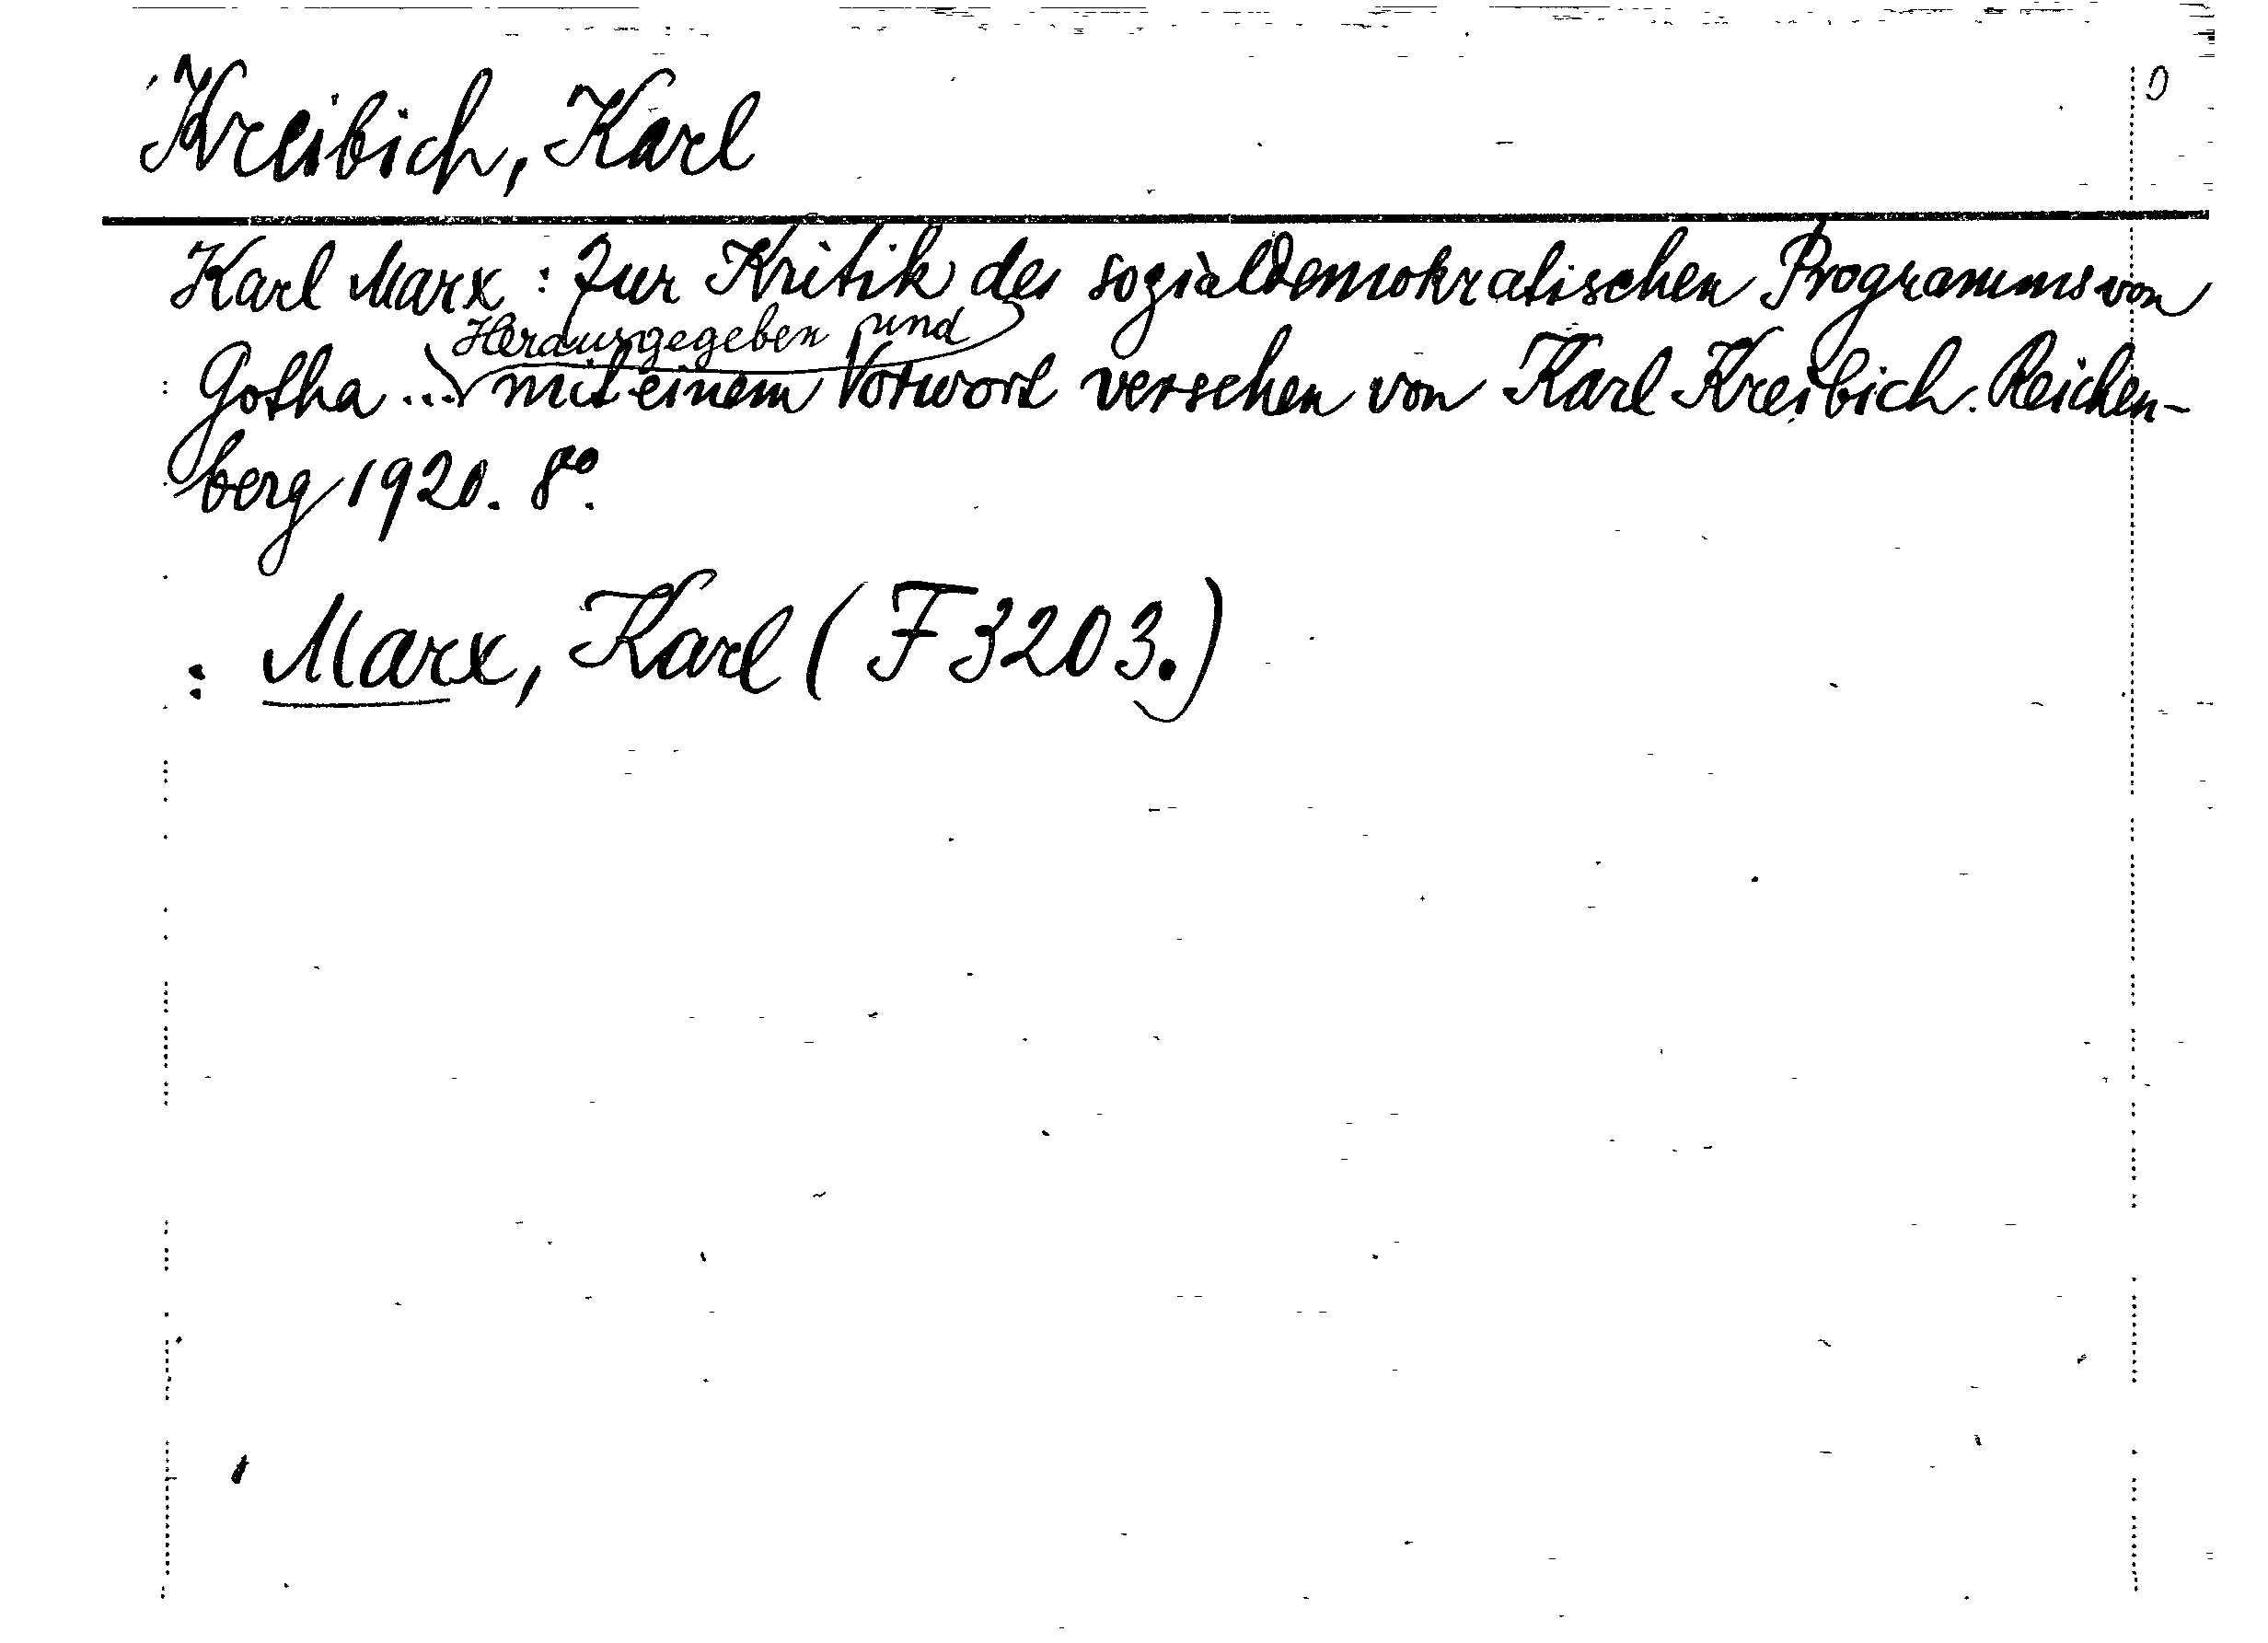 Kreibich, Karl
Karl Marx: Zur Kritik des sozialdemokratischen Programms von
Herausgegeben und
Gotha ... mit einem Vorwort versehen von Karl Kreibich. Reichen-
berg 1920. 8°.
: Marx, Karl (F 3203.)